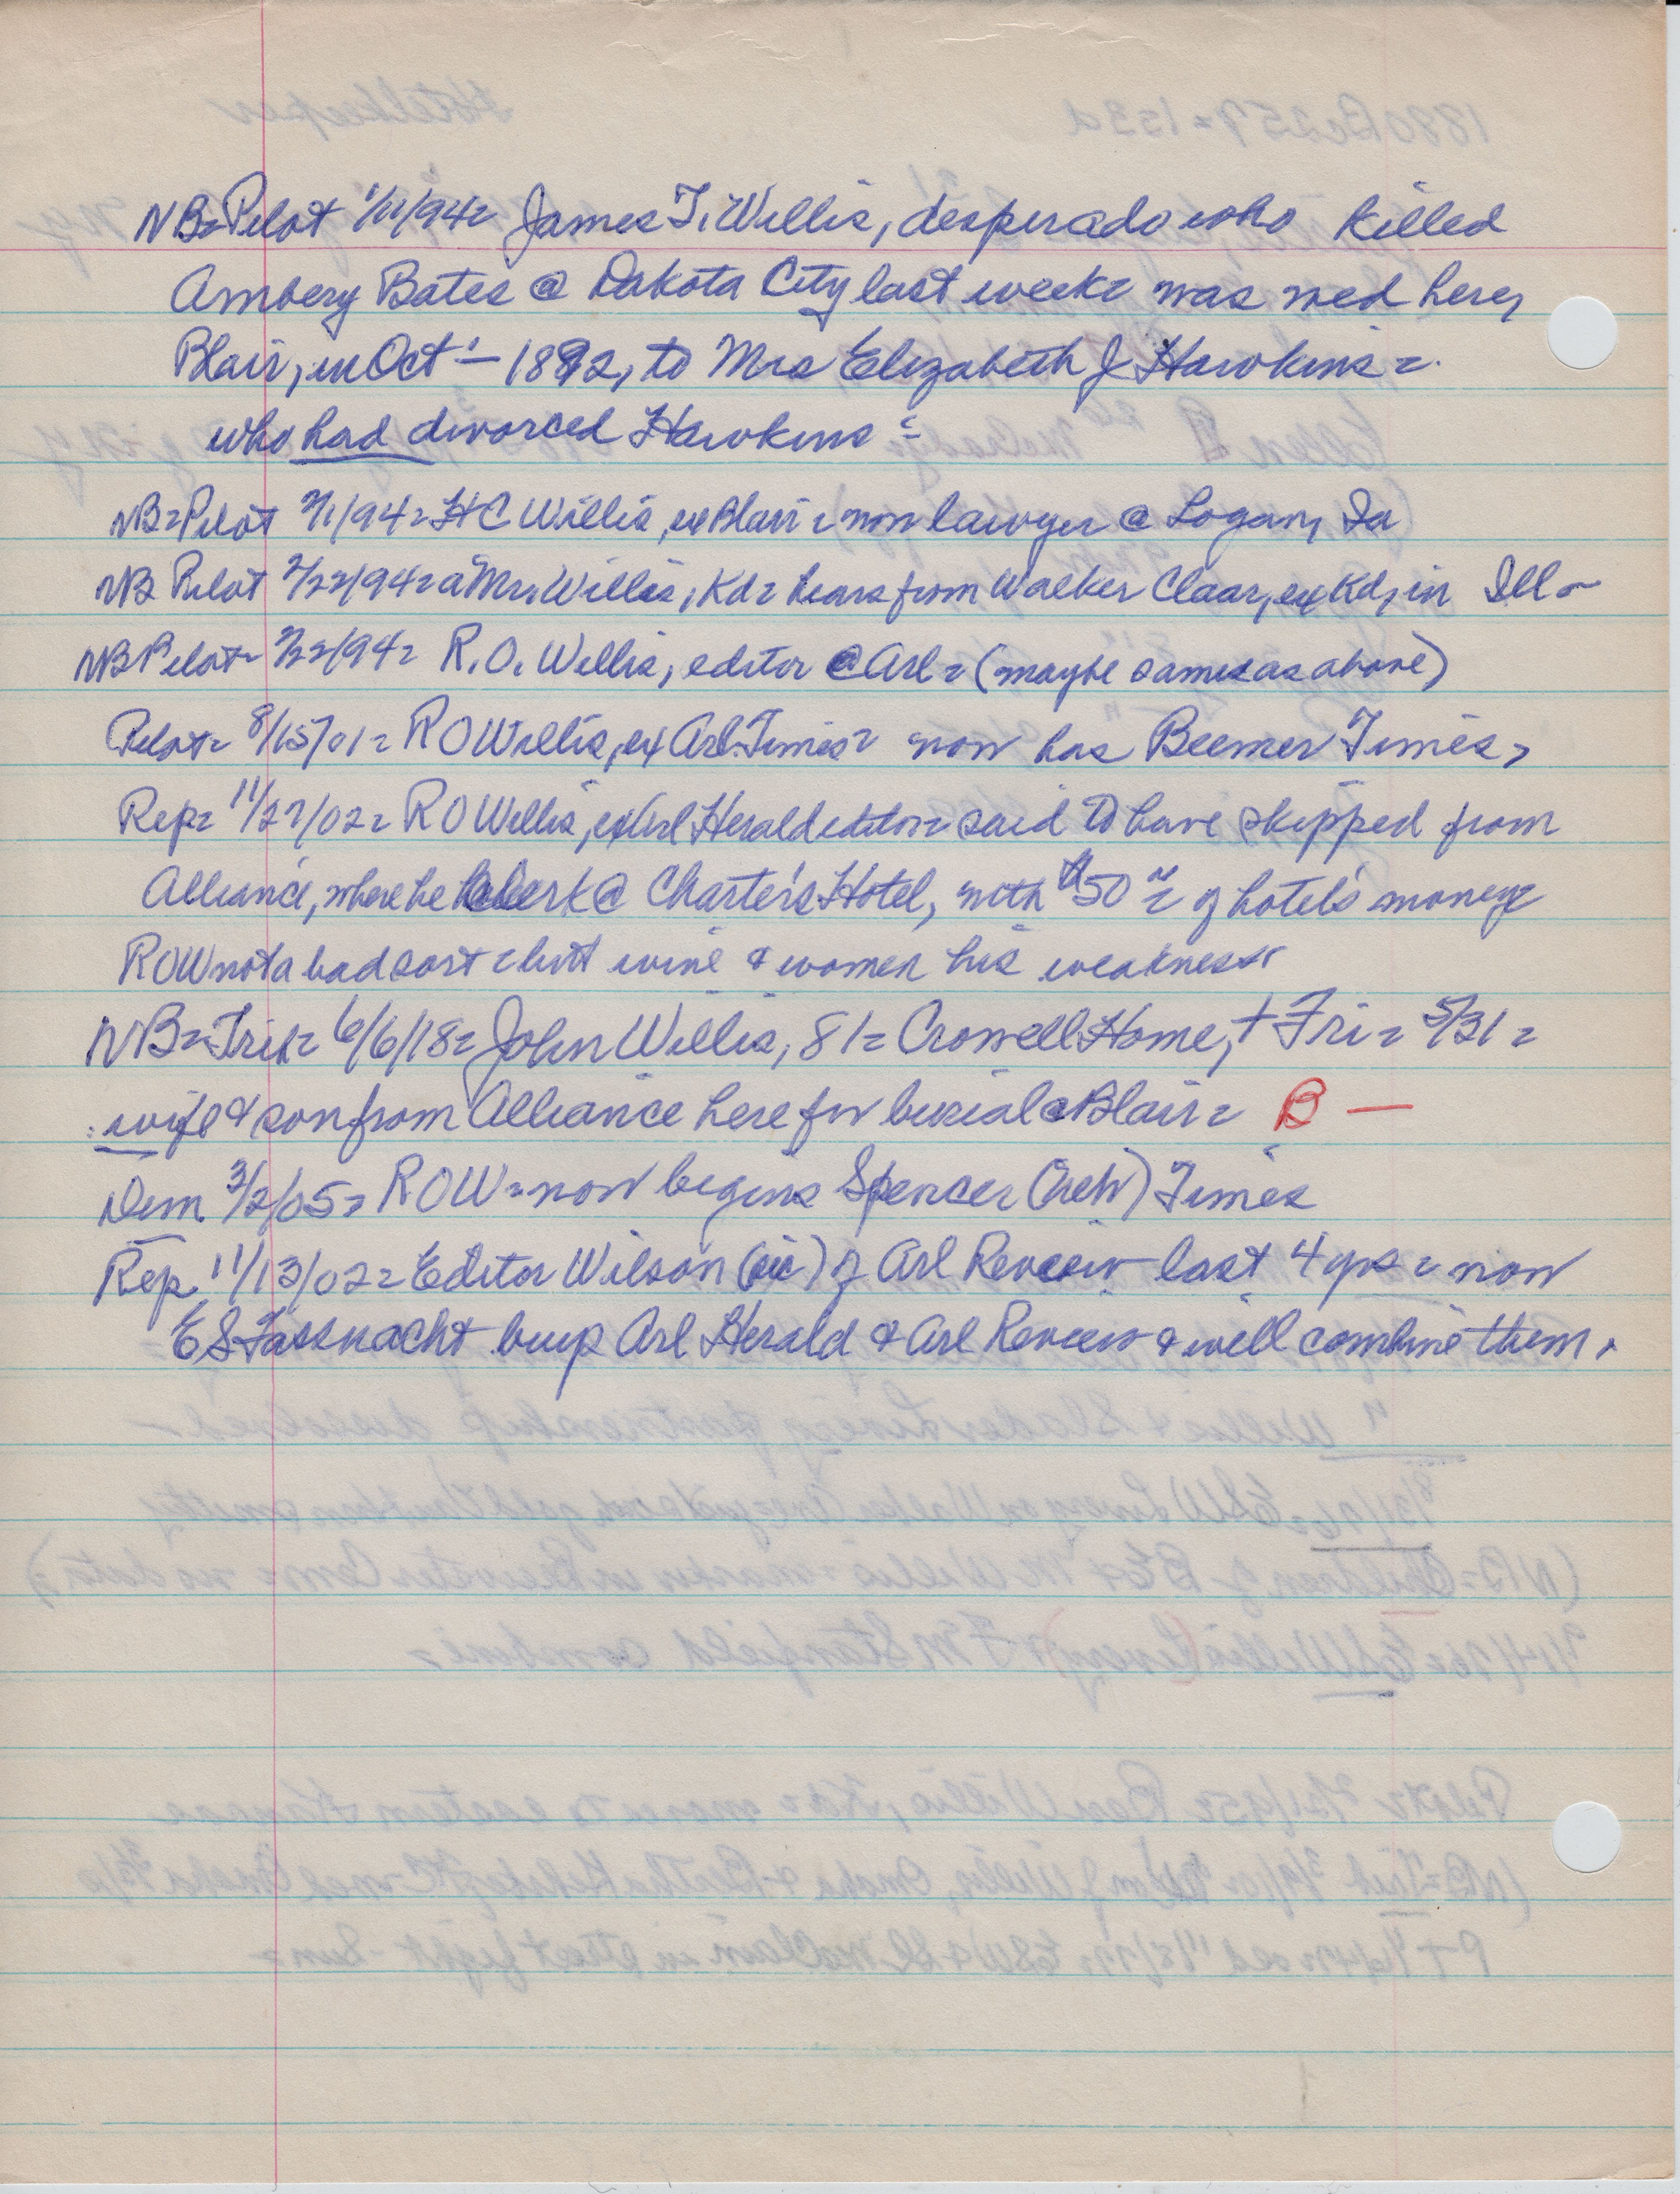 NB= Pilot 1/11/94= James T. Willis, desperado who killed
Ambery Bates @ Dakota City last week= was med here,
Blair, in Oct - 1892, to Mrs Elizabeth J Hawkins =
who had divorced Hawkins =
NB= Pilot 2/1/94= H C Willis, ex Blair = now lawyer @ Logan, Ia
NB Pilot 2/22/94= a Mr. Willis, Kd= hears from Walker Claar, ex Kd, in Ill -
NB Pilot= 2/22/94= R. O. Willis, editor @ Arl = (maybe same as above)
Pilot= 8/15/01= R O Willis, ex Arl. Times= now has Beemer Times,
Rep= 11/27/02= R O Willis, ex Arl Herald editor= said to have skipped from
Alliance, where he clerk @ Charter's Hotel, with $50 of hotel's money=
ROW not a bad sort = but wine & women his weakness
NB= Trib= 6/6/18= John Willis, 81= Crowell Home, + Fri = 5/31 =
wife & son from Alliance here for burial @ Blair = B —
Dem 3/2/05= ROW= now begins Spencer (Neb) Times
Rep. 11/13/02= Editor Wilson (sic) of Arl Review last 4 yrs = now
E S Fassnacht buys Arl Herald & Arl Review & will combine them.